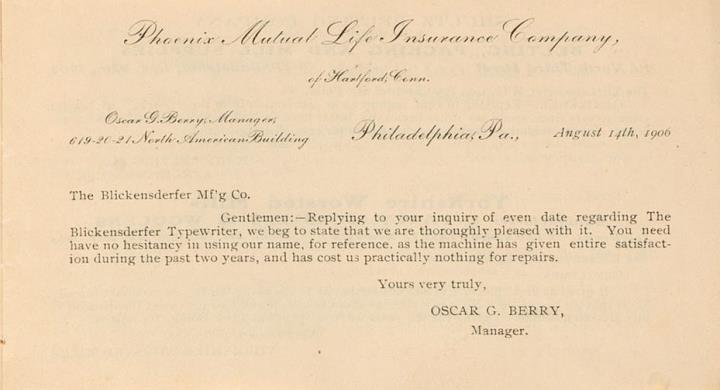 Phoenix Mutual Life Insurance Company,
of Hartford, Conn.
Oscar G. Berry, Manager,
619-20-21 North American Building
Philadelphia, Pa., August 14th, 1906
The Blickensderfer Mf'g Co.
Gentlemen:—Replying to your inquiry of even date regarding The
Blickensderfer Typewriter, we beg to state that we are thoroughly pleased with it. You need
have no hesitancy in using our name, for reference. as the machine has given entire satisfact-
ion during the past two years, and has cost us practically nothing for repairs.
Yours very truly,
OSCAR G. BERRY,
Manager.